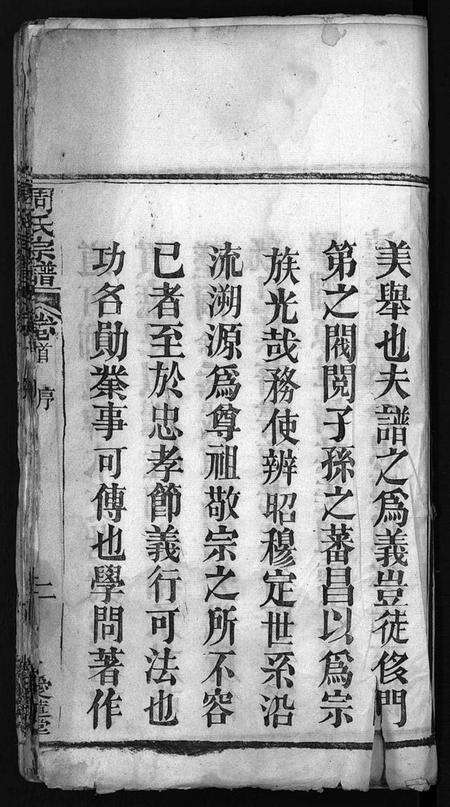 美舉也夫譜之為義豈徒侈門
第之閥閱子孫之蕃昌以為宗
族光哉務使辨昭穆定世系沿
流溯源為尊祖敬宗之所不容
已者至於忠孝節義行可法也
功名勛業事可傳也學問著作
周氏宗譜 卷首 序 二